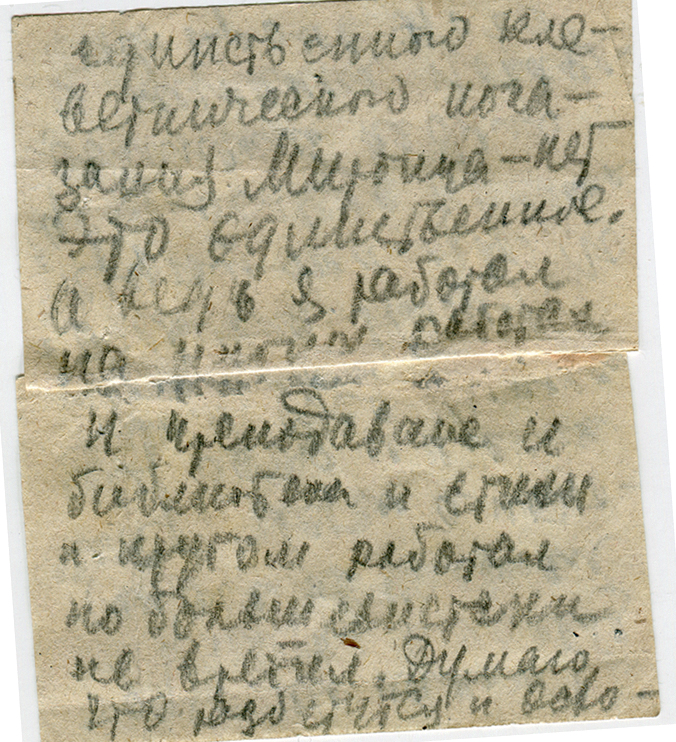 единственного кле-
ветнического пока-
зания Мирошца - нет
это единственное.
а ведь я работал
на многих работах
и преподаване и
библиотека и стихи
и кругом работал
по большевистски
не вредил. Думаю,
что разберутся и осво-